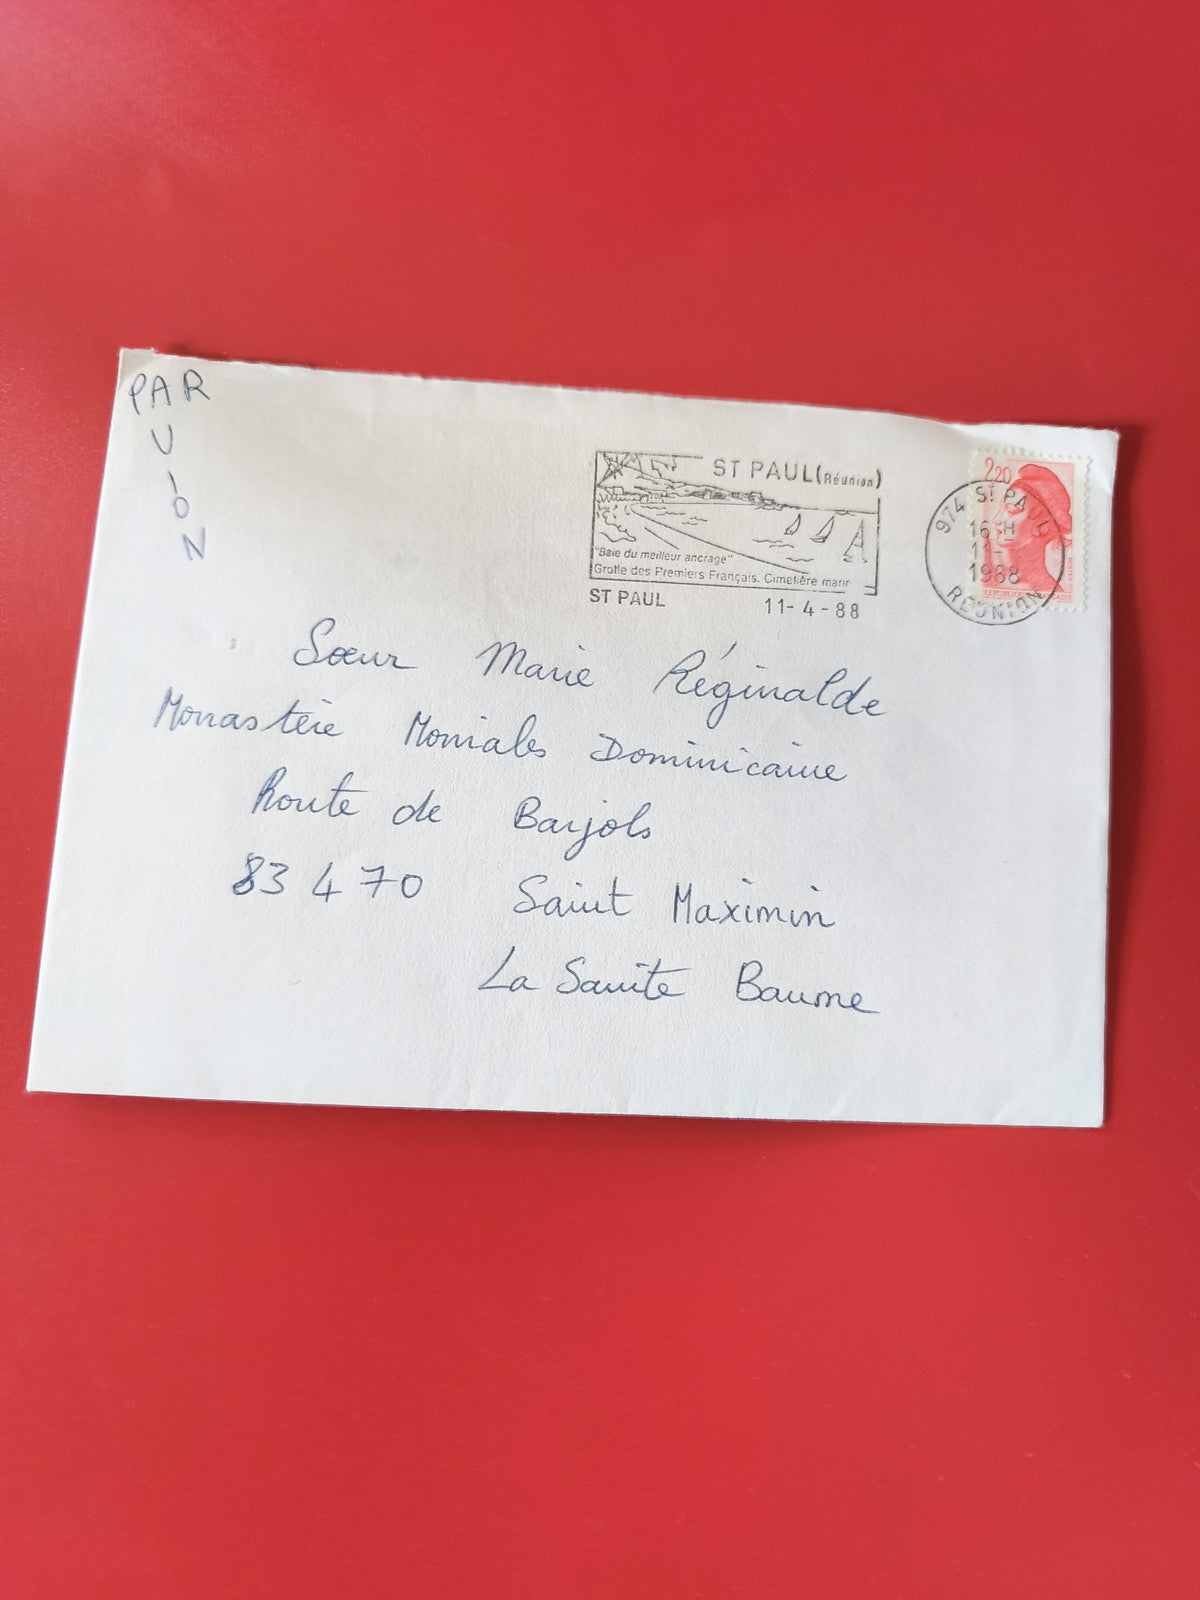 PAR
V
I
O
N
ST PAUL (Réunion)
"Baie du meilleur ancrage"
Grotte des Premiers Français. Cimetière marin
ST PAUL 11-4-88
2,20
974 ST PAUL
16 H
11-
1988
REUNION
Sœur Marie Réginalde
Monastère Moniales Dominicaine
Route de Barjols
83 470 Saint Maximin
La Sainte Baume